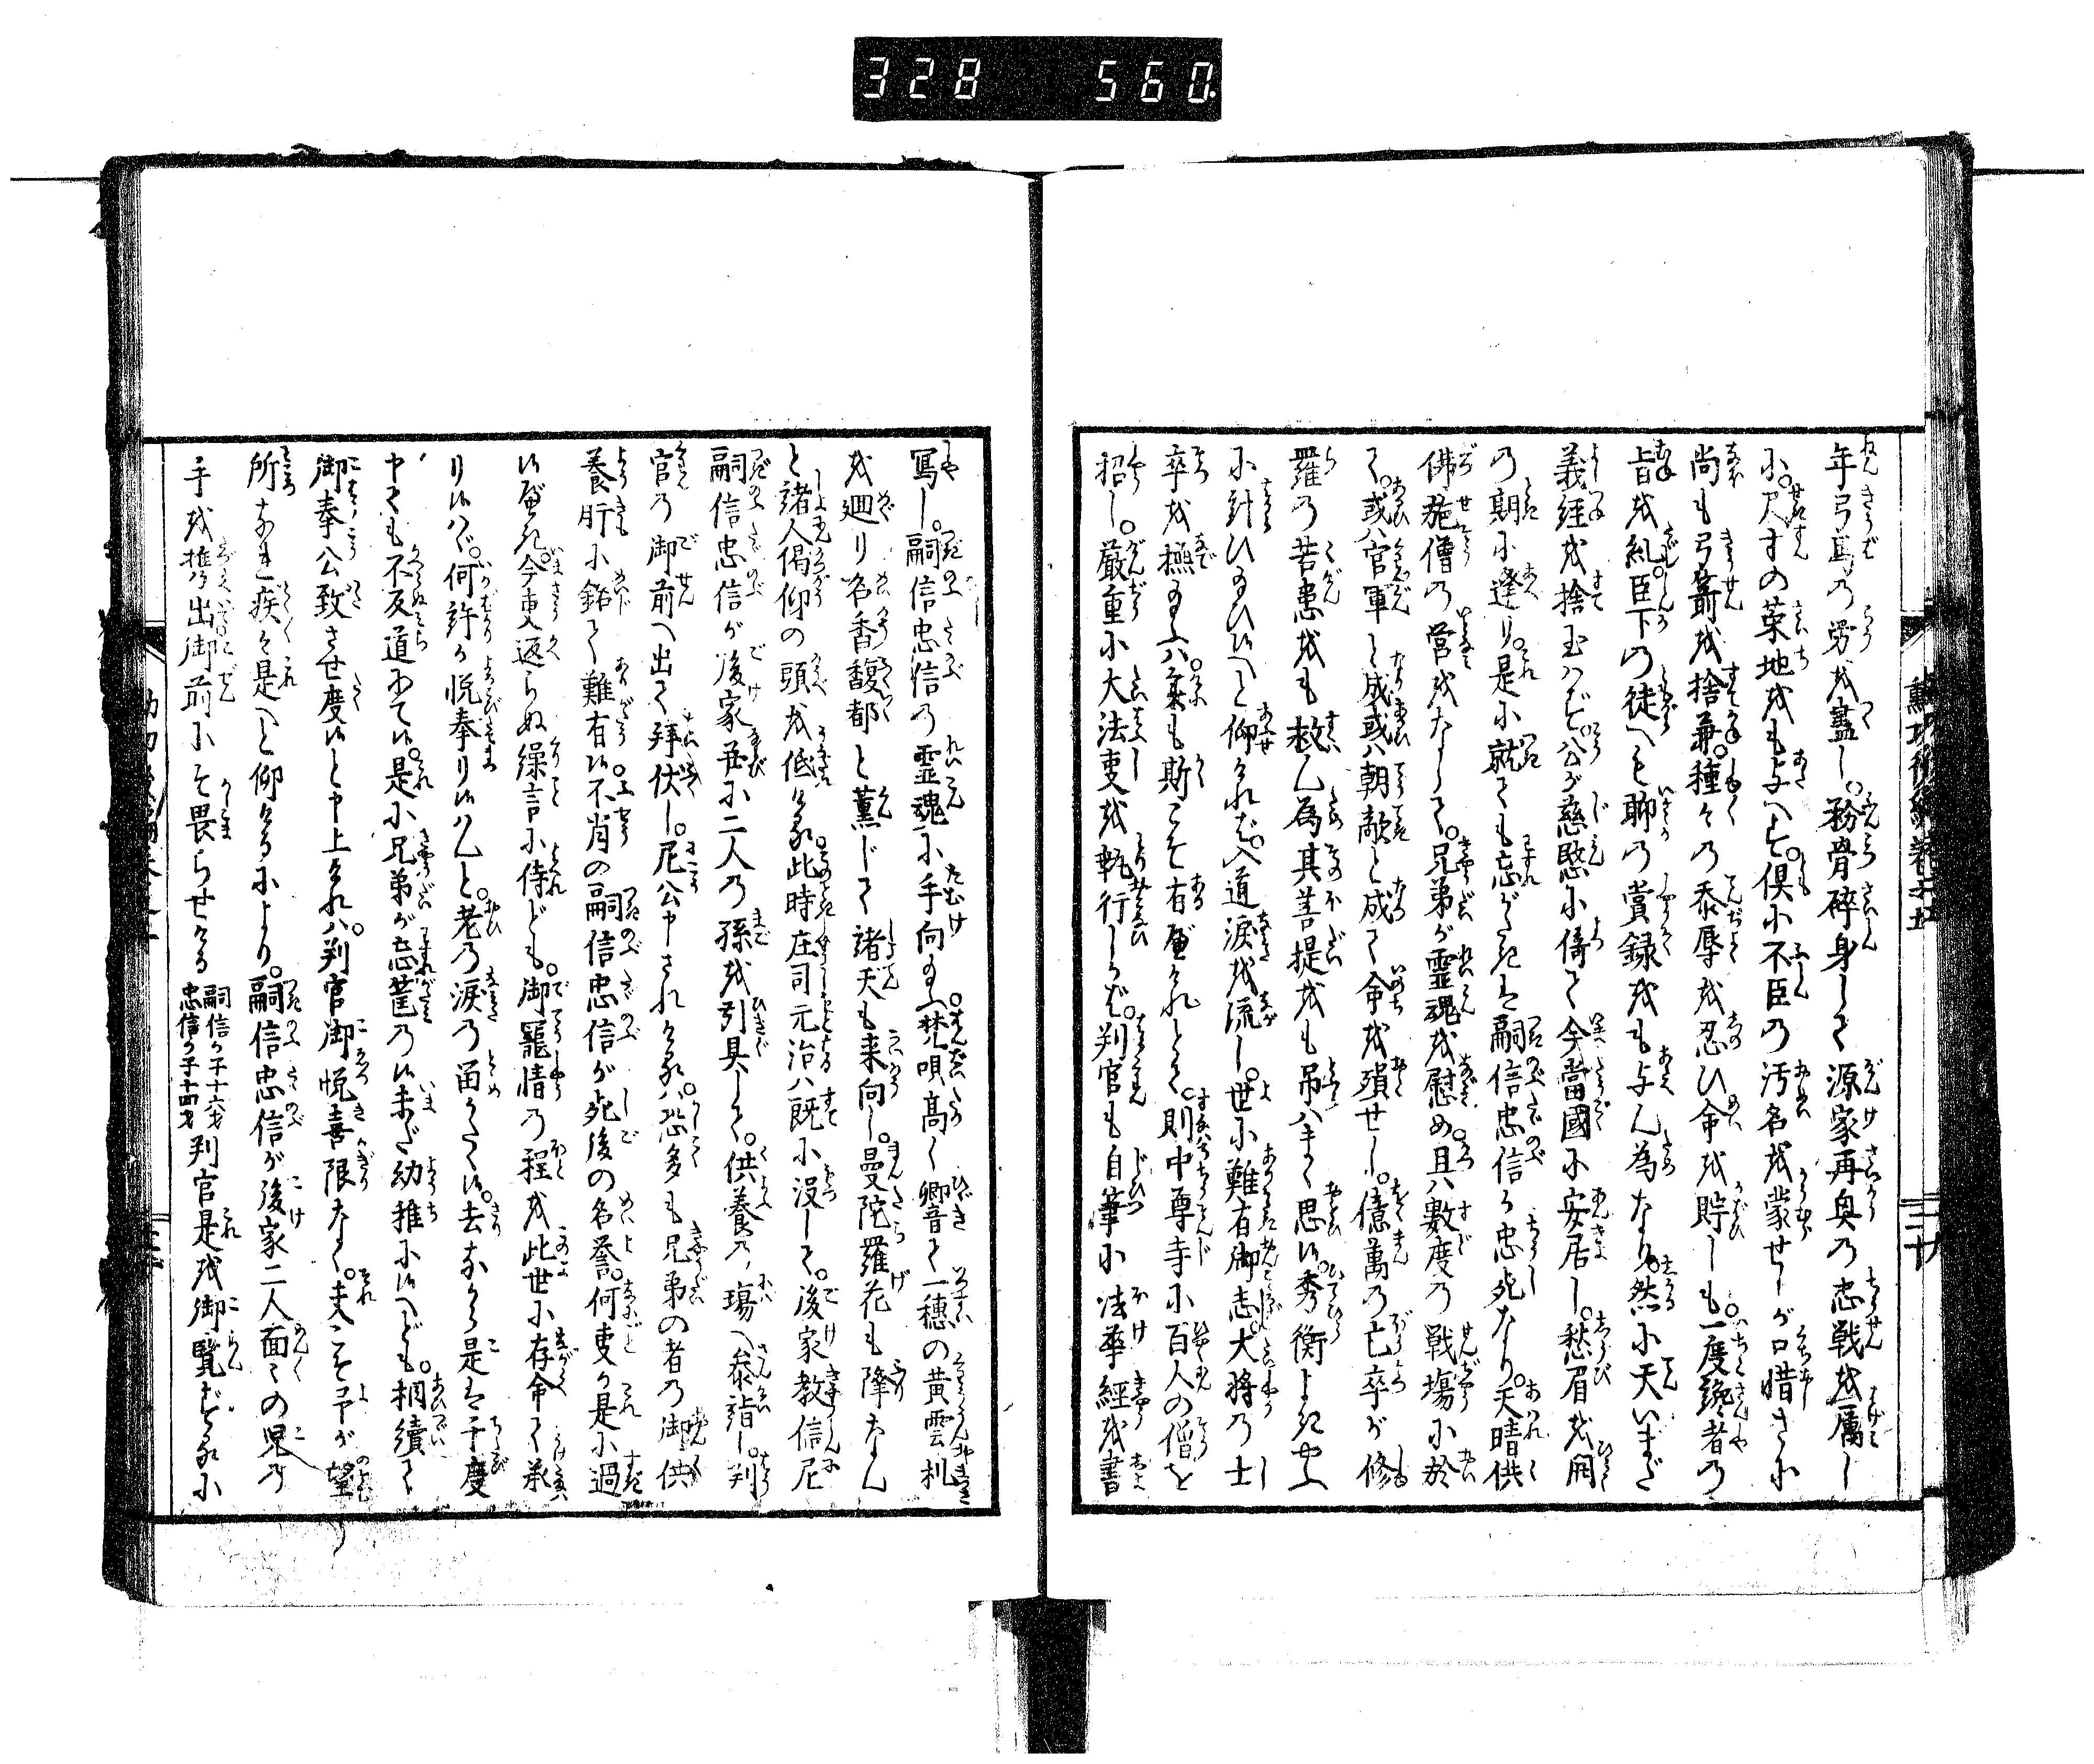 328 560
年弓馬の労を盡し。粉骨砕身して源家再興の忠戦を厲し
に。尺寸の菜地をも与へず。倶に不臣の汚名を蒙せしが口惜さに
尚も弓箭を捨兼。種々の恭辱を忍ひ命を貯しも。一度讒者の
旨を糺。臣下の徒へも聊の賞録をも与ん為なり。然に天いまだ
義經を捨玉はず。公が慈愍に倚て今當國に安居し。愁眉を開
の期に逢り。是に就ても忘がたきは嗣信忠信が忠死なり。天晴供
佛施僧の営をなして。兄弟が霊魂を慰め。且ハ數度の戦場に於
て。或ハ官軍と成或ハ朝敵と成て命を殞せし。億萬の亡卒が修
羅の苦患をも救ん為其菩提をも吊ハまく思ひ。秀衡よきやふ
に計ひ給ひ候へと仰ければ。入道涙を流し。世に難有御志。大将の士
卒を撫給ふハ。豪も斯こそ有べけれとて。則中尊寺に百人の僧を
招し。厳重に大法事を執行しかば。判官も自筆に法華經を書
寫し。嗣信忠信の霊魂に手向給ふ。梵唄高く響きて一穂の黄雲札
を廻り名香馥郁と薫じて諸天も来向し。曼陀羅花も降なん
と諸人偈仰の頭を低ける。此時庄司元治ハ既に没して。後家教信尼
嗣信忠信が後家并に二人の孫を引具して。供養の場へ参詣し。判
官の御前へ出て拜伏し。尼公申されける。恐多も兄弟の者の御供
養肝に銘て難有候。不肖の嗣信忠信が死後の名誉。何事か是に過
候べき。今更返らぬ繰言に侍ども。御寵情の程を此世に存命て承
り候ハゞ。何許か悦奉り候ハんと。老の涙の留かたく候。去ながら是は千度
申ても不及道にて候。是に兄弟が忘筐の候。未だ幼稚に候へども。相續て
御奉公致させ度候と申上ければ。判官御悦喜限なく。夫こそ予が望
所なれ疾々是へと仰けるにより。嗣信忠信が後家二人面々の児の
手を携出御前にぞ畏らせける 嗣信が子十六才 忠信が子十四才 判官是を御覧ずるに